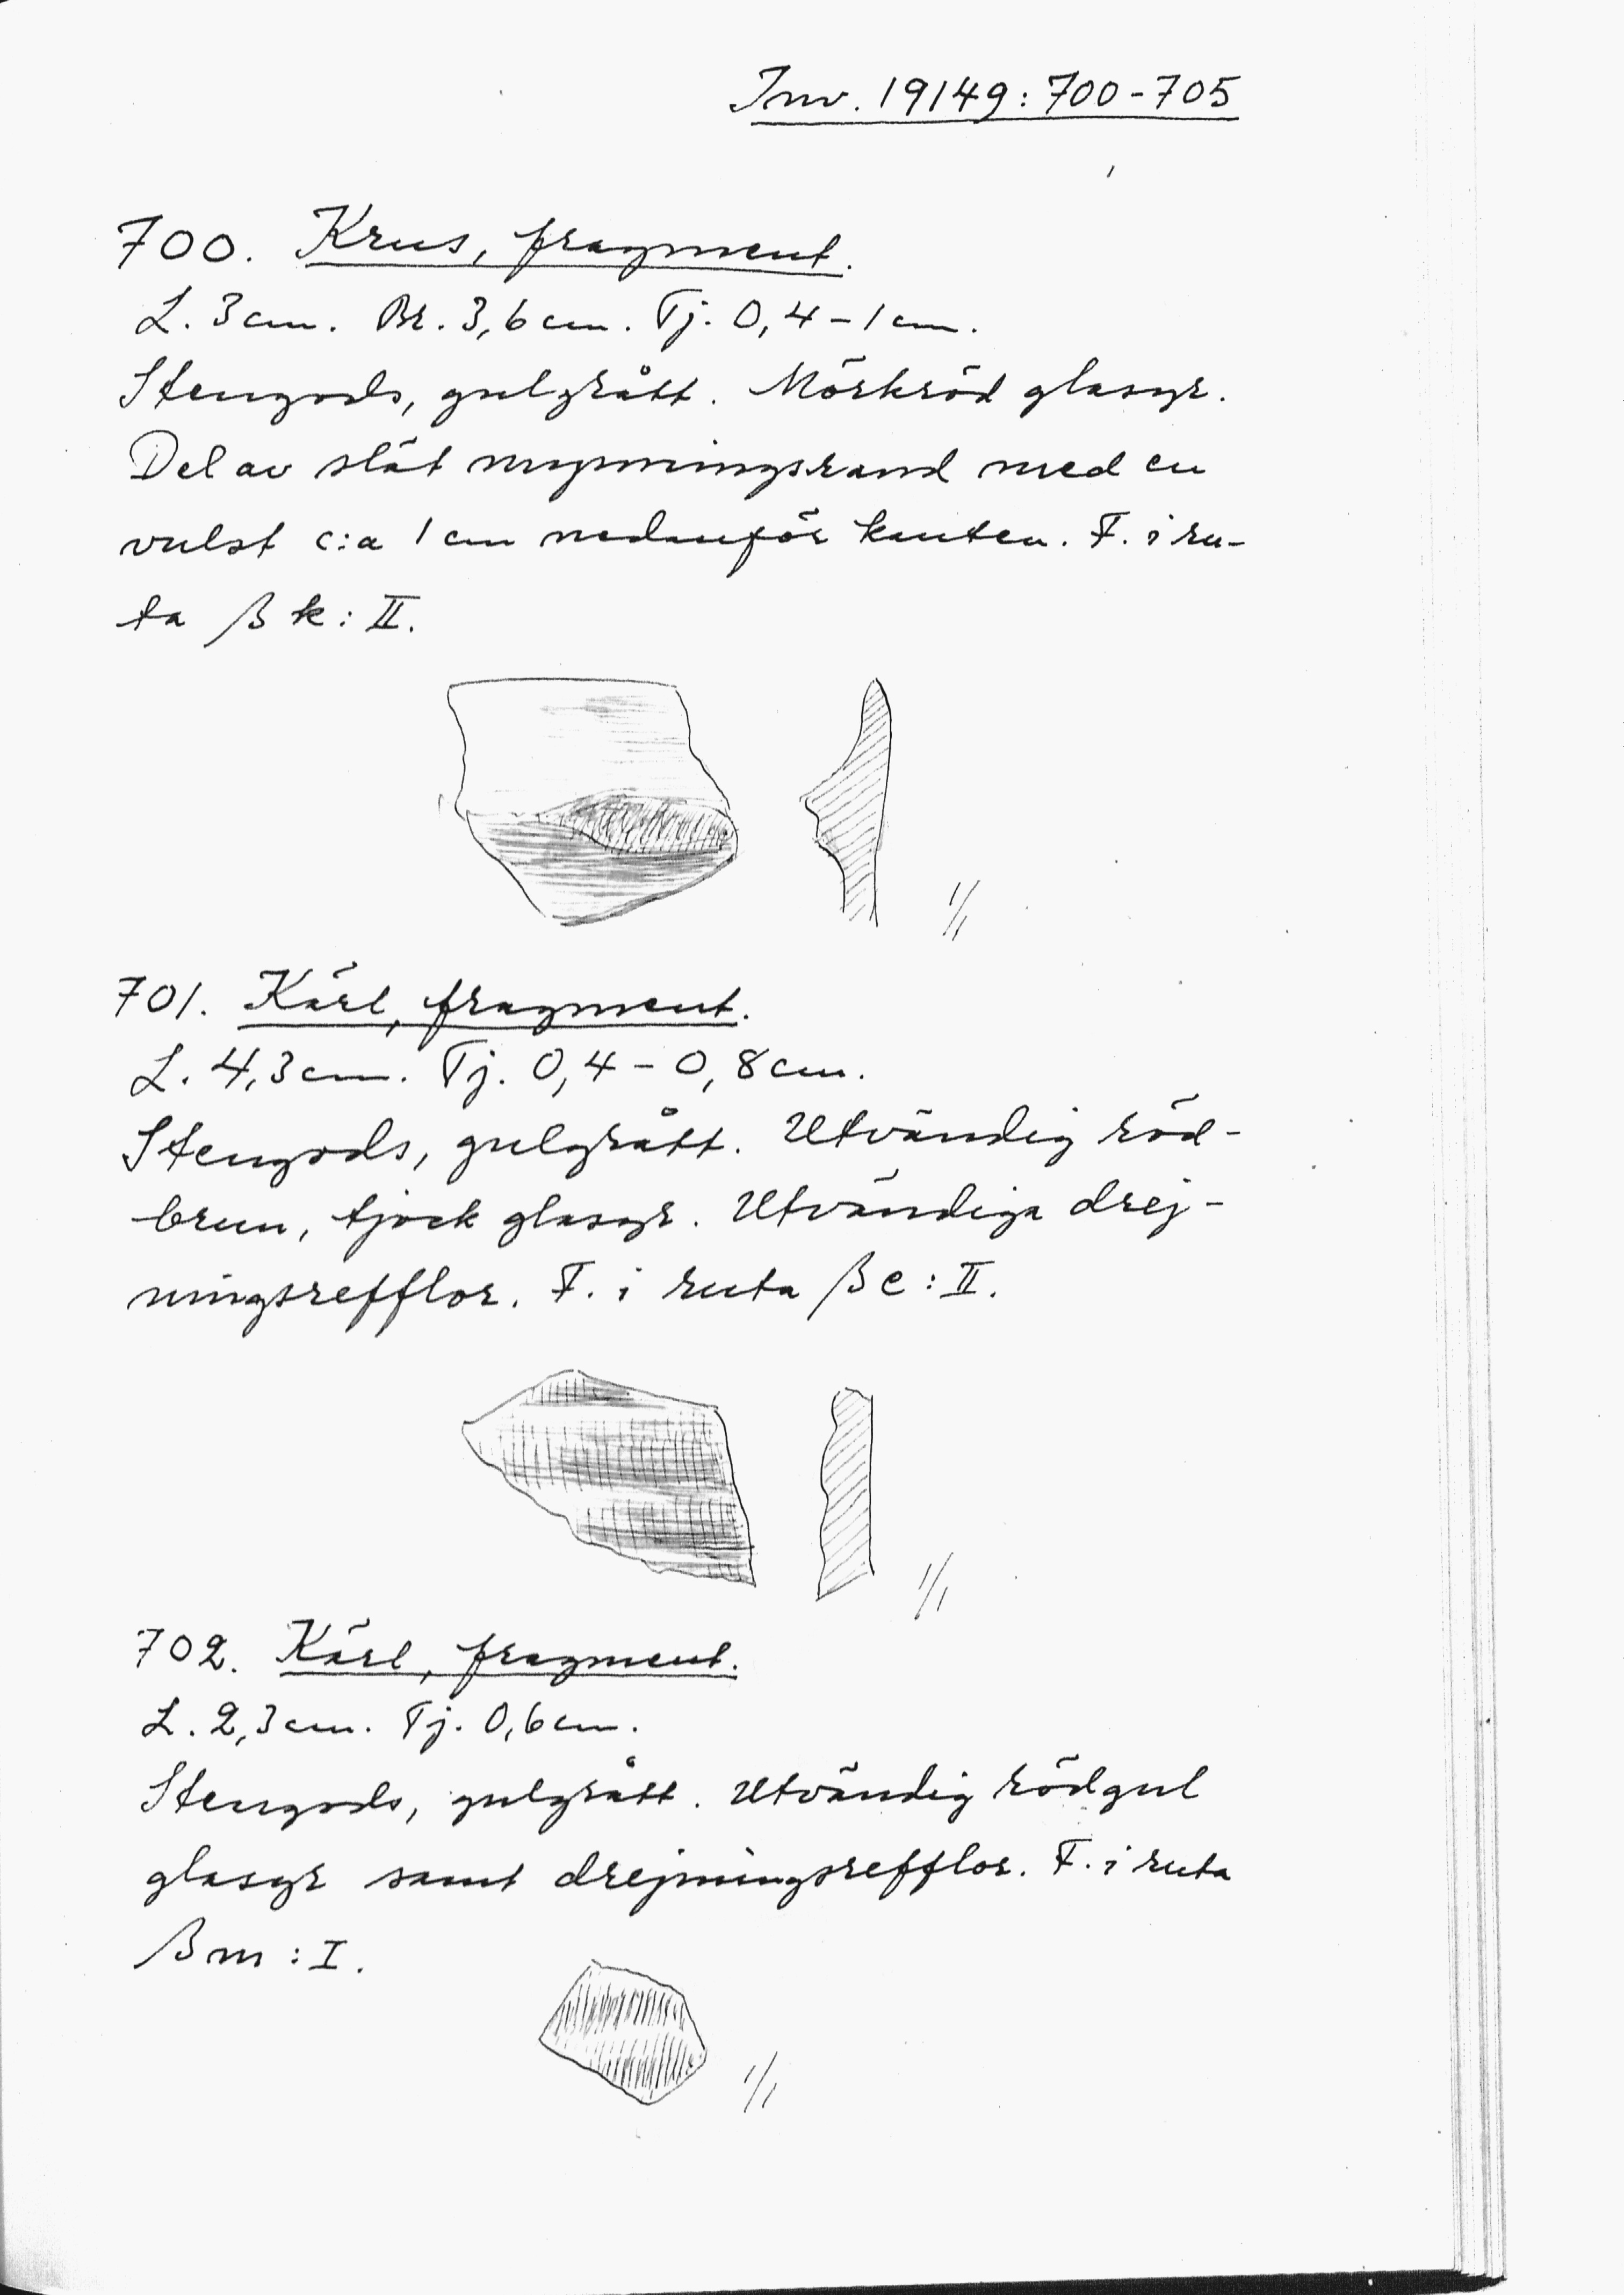 Inv. 19149:700-705
700. Krus, fragment.
L. 3cm. Br. 3,6cm. Tj. 0,4-1cm.
Stengods, gulgrått. Mörkröd glasyr.
Del av slät mynningsrand med en
vulst c:a 1 cm nedanför kanten. F. i ru-
ta βk:II.
1/1
701. Kärl, fragment.
L. 4,3cm. Tj. 0,4-0,8cm.
Stengods, gulgrått. Utvändig röd-
brun, tjock glasyr. Utvändiga drej-
ningsrefflor. F. i ruta βe:II.
1/1
702. Kärl, fragment.
L. 2,3cm. Tj. 0,6cm.
Stengods, gulgrått. Utvändig rödgul
glasyr samt drejningsrefflor. F. i ruta
βm:I.
1/1